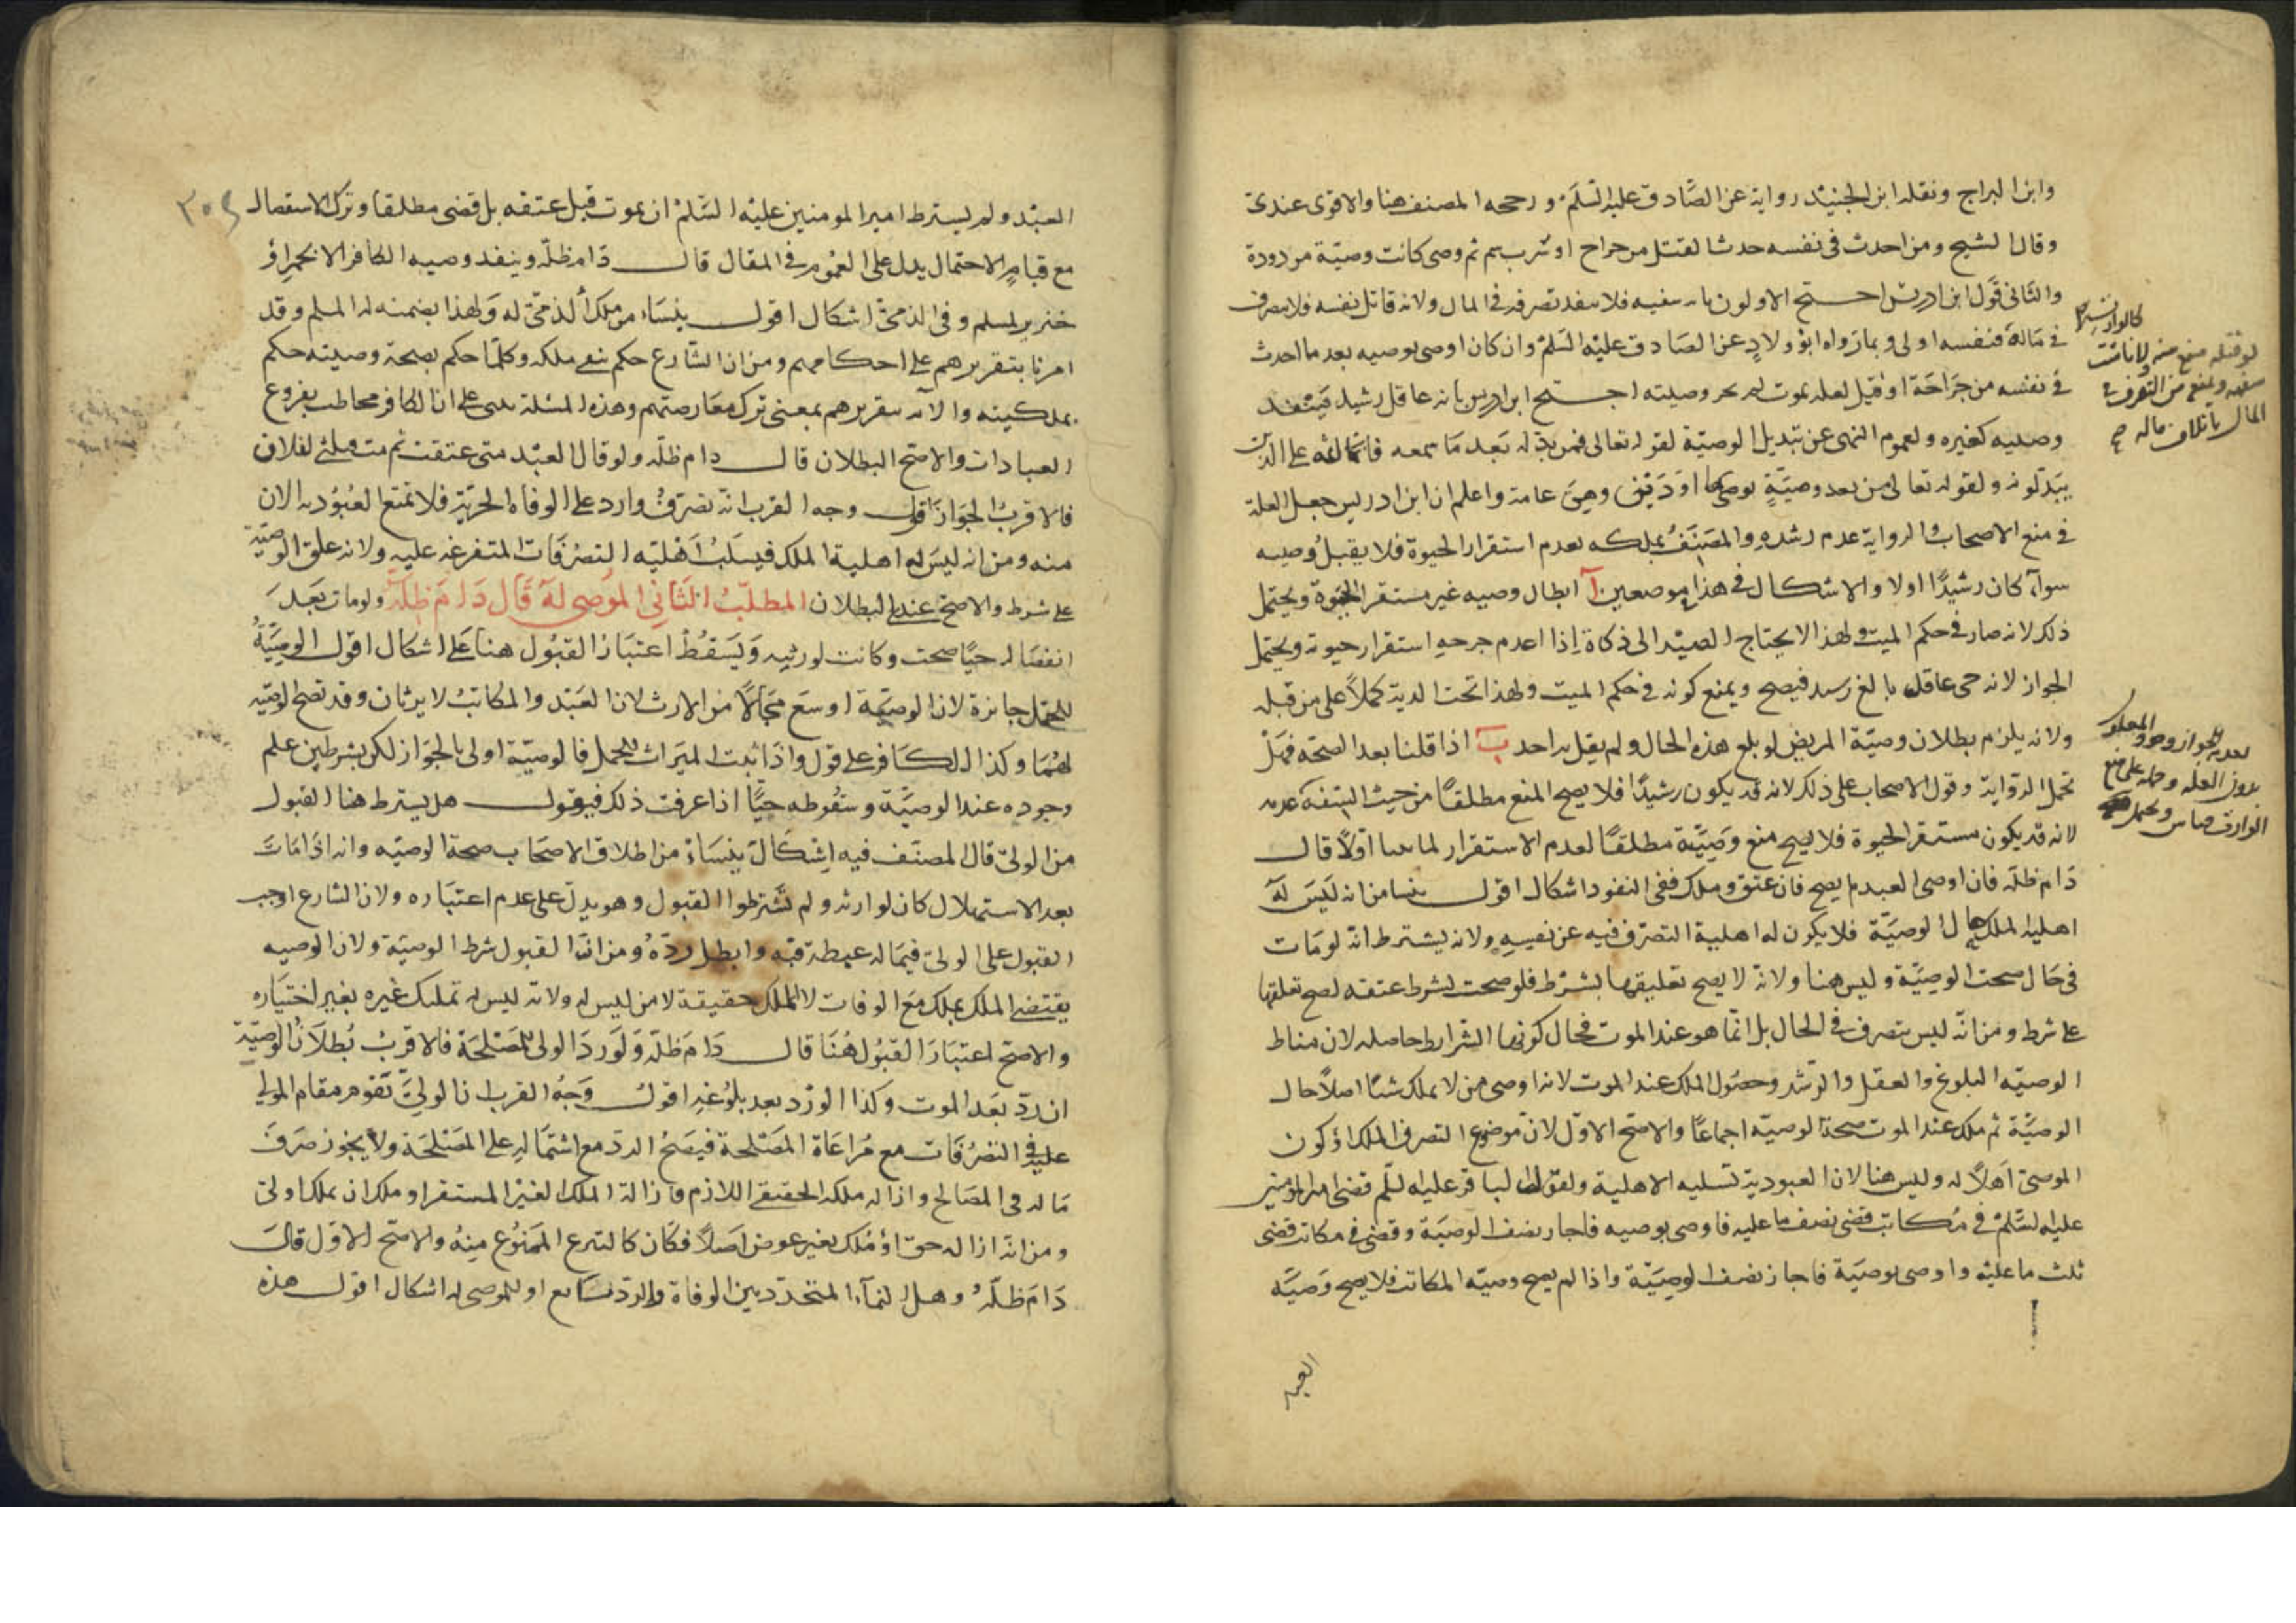 وابن البراج ونقله ابن الجنيد رواية عن الصادق عليه السلم ورجحه المصنف هنا والاقوى عندى
وقال الشيخ ومن احدث فى نفسه حدثا لقتل من جراح او شرب سم ثم وصى كانت وصيّة مردودة
والثانى قول ابن ادريس احتج الاولون بانه سفيه فلا ينفد تصرفه فى المال ولانه قاتل نفسه فلا يتصرف
فى ماله فنفسه اولى وبما رواه ابو ولاد عن الصادق عليه السلم وان كان اوصى بوصيه بعد ما احدث
فى نفسه من جراحة او قيل لعله يموت لم يجز وصيته احتج ابن ادريس بانه عاقل رشيد فينفد
وصيه كغيره ولعموم النهى عن تبديل الوصيّة لقوله تعالى فمن بدّله بعد ما سمعه فانما اثمه على الذين
يبدّلونه ولقوله تعالى من بعد وصيّة يوصى بها او دين وهى عامة واعلم ان ابن ادريس جعل العلة
فى منع الاصحاب والرواية عدم رشده والمصنف بملكه بعدم استقرار الحيوة فلا يقبل وصيه
سوآء كان رشيدًا اولا والاشكال فى هذا موضعين آ ابطال وصيه غير مستقر الحيوة ويحتمل
ذلك لانه صار فى حكم الميت ولهذا لا يحتاج الصيد الى ذكاة اذا اعدم جرحه استقرار حيوته ويحتمل
الجواز لانه حى عاقل بالغ رشيد فيصح ويمنع كونه فى حكم الميت ولهذا تجب الدية كملاً على من قبله
ولانه يلزم بطلان وصيّة المريض لو بلغ هذه الحال ولم يقل به احد ب اذا قلنا بعد الصحة فهل
تحمل الرواية وقول الاصحاب على ذلك لانه قد يكون رشيدًا فلا يصح المنع مطلقًا من حيث السفه
لانه قد يكون مستقر الحيوة فلا يصح منع وصيّة مطلقًا لعدم الاستقرار لما اولاً قال
دام ظلّه فان اوصى العبد لم يصح فان عتق وملك ففى النفود اشكال اقول ينشا من انه ليس له
اهلية الملك حال الوصيّة فلا يكون له اهلية التصرف فيه عن نفسه ولانه يشترط انه لو مات
فى حال صحت الوصيّة وليس هنا ولانه لا يصح تعليقها بشرط فلو صحت لشرط عتقه لصح تعلقها
على شرط ومن انّه ليس بتصرف فى الحال بل انّما هو عند الموت فحال كونها الشرايط حاصله لان مناط
الوصيّه البلوغ والعقل والرّشد وحصول الملك عند الموت لانه اوصى من لا يملك شيئا اصلاً حال
الوصيّة ثم ملك عند الموت صحة الوصيّه اجماعًا والاصح الاوّل لان موضوع التصرف الملك او كون
الموصى اهلاً له وليس هنا لان العبودية تسلبه الاهلية ولقول الباقر عليه السّلم قضى امير المومنين
عليه السّلم فى مكاتب قضى نصف ما عليه فاوصى بوصيه فاجاز نصف الوصيّة وقضى فى مكاتب قضى
ثلث ما عليه واوصى بوصيّة فاجاز نصف الوصيّة واذا لم يصح وصيّه المكاتب فلا يصح وصيّه
العبد
لو قتله منع منه
كالوارث
سفهه ويمنع من التصرف فى
المال باتلاف ماله صح
٣٠٩
العبد ولم يشترط امير المومنين عليه السّلم ان يموت قبل عتقه بل قضى مطلقا وترك الاستفصال
مع قيام الاحتمال يدل على العموم فى المقال قال دام ظلّه وينفد وصيه الكافر الا بخمر او
خنزير لمسلم وفى الذمّى اشكال اقول ينشاء من ملك الذمّى له ولهذا يضمنه له المسلم وقد
امرنا بتقريرهم على احكامهم ومن ان الشّارع حكم بنفى ملكه وكلّما حكم بصحة وصيته حكم
بملكيته والا تقريرهم بمعنى ترك معارضتهم وهذه المسئلة على ان الكافر مخاطب بفروع
العبادات والاصح البطلان قال دام ظلّه ولو قال العبد متى عتقت ثم مت فثلثى لفلان
فالاقرب الجواز اقول وجه القرب انّه تصرّف وارد على الوفاه الحريّة فلا تمنع العبوديه الان
منه ومن انه ليس له اهلية الملك فيسلب اهليّه التصرّفات المتفرعه عليه ولانه علق الوصيّة
على شرط والاصح عندى البطلان المطلب الثانى الموصى له قال دام ظلّه ولو مات بعد
انفصاله حيًّا صحت وكانت لورثه ويسقط اعتبار القبول هنا على اشكال اقول الوصيّة
للحمل جايزة لان الوصيّة اوسع مجالاً من الارث لان العبد والمكاتب لا يرثان وقد تصح الوصيّه
لهما وكذا الكافر على قول واذا ثبت الميراث للحمل فالوصيّة اولى بالجواز لكن بشرطين علم
وجوده عند الوصيّة وسقوطه حيًّا اذا عرفت ذلك فنقول هل يشترط هنا القبول
من الولىّ قال المصنّف فيه اشكال ينشاء من اطلاق الاصحاب صحة الوصيّه وانه اذا مات
بعد الاستهلال كان لوارثه ولم يشترطوا القبول وهو يدل على عدم اعتباره ولان الشارع اوجب
القبول على الولىّ فيما له غبطة فيه وابطل ردّه ومن انّ القبول شرط الوصيّة ولان الوصيه
يقتضى الملك بملك مع الوفات لا الملك حقيقة لا من ليس له ولانه ليس له تمليك غيره بغير اختياره
والاصح اعتبار القبول هنا قال دام ظلّه ولو ردّ الولى لمصلحة فالاقرب بطلان الوصيّة
ان ردّ بعد الموت وكذا الورد بعد بلوغه اقول وجه القرب ان الولىّ تقوم مقام المولى
عليه فى التصرّفات مع مراعاة المصلحة فيصح الرد مع اشتماله على المصلحة ولا يجوز صرف
ماله فى المصالح وازاله ملكه الحقيقى اللازم فازالة الملك الغير المستقر او ملك ان يملك اولى
ومن انّه ازاله حق او ملك بغير عوض اصلاً فكان كالتبرع الممنوع منه والاصح الاوّل قال
دام ظلّه وهل النمآء المتجدّد بين الوفاة والردّ تابع او للموصى له اشكال اقول هذه